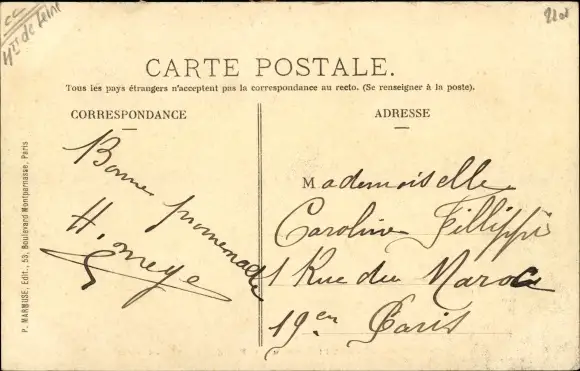 cc
Hts de Seine
2202
CARTE POSTALE.
Tous les pays étrangers n'acceptent pas la correspondance au recto. (Se renseigner à la poste).
CORRESPONDANCE
Bonne promenade
H. meye
P. MARMUSE, Edit., 53, Boulevard Montparnasse, Paris
ADRESSE
Mademoiselle
Caroline Fillippis
1 Rue du Maroc
19en Paris